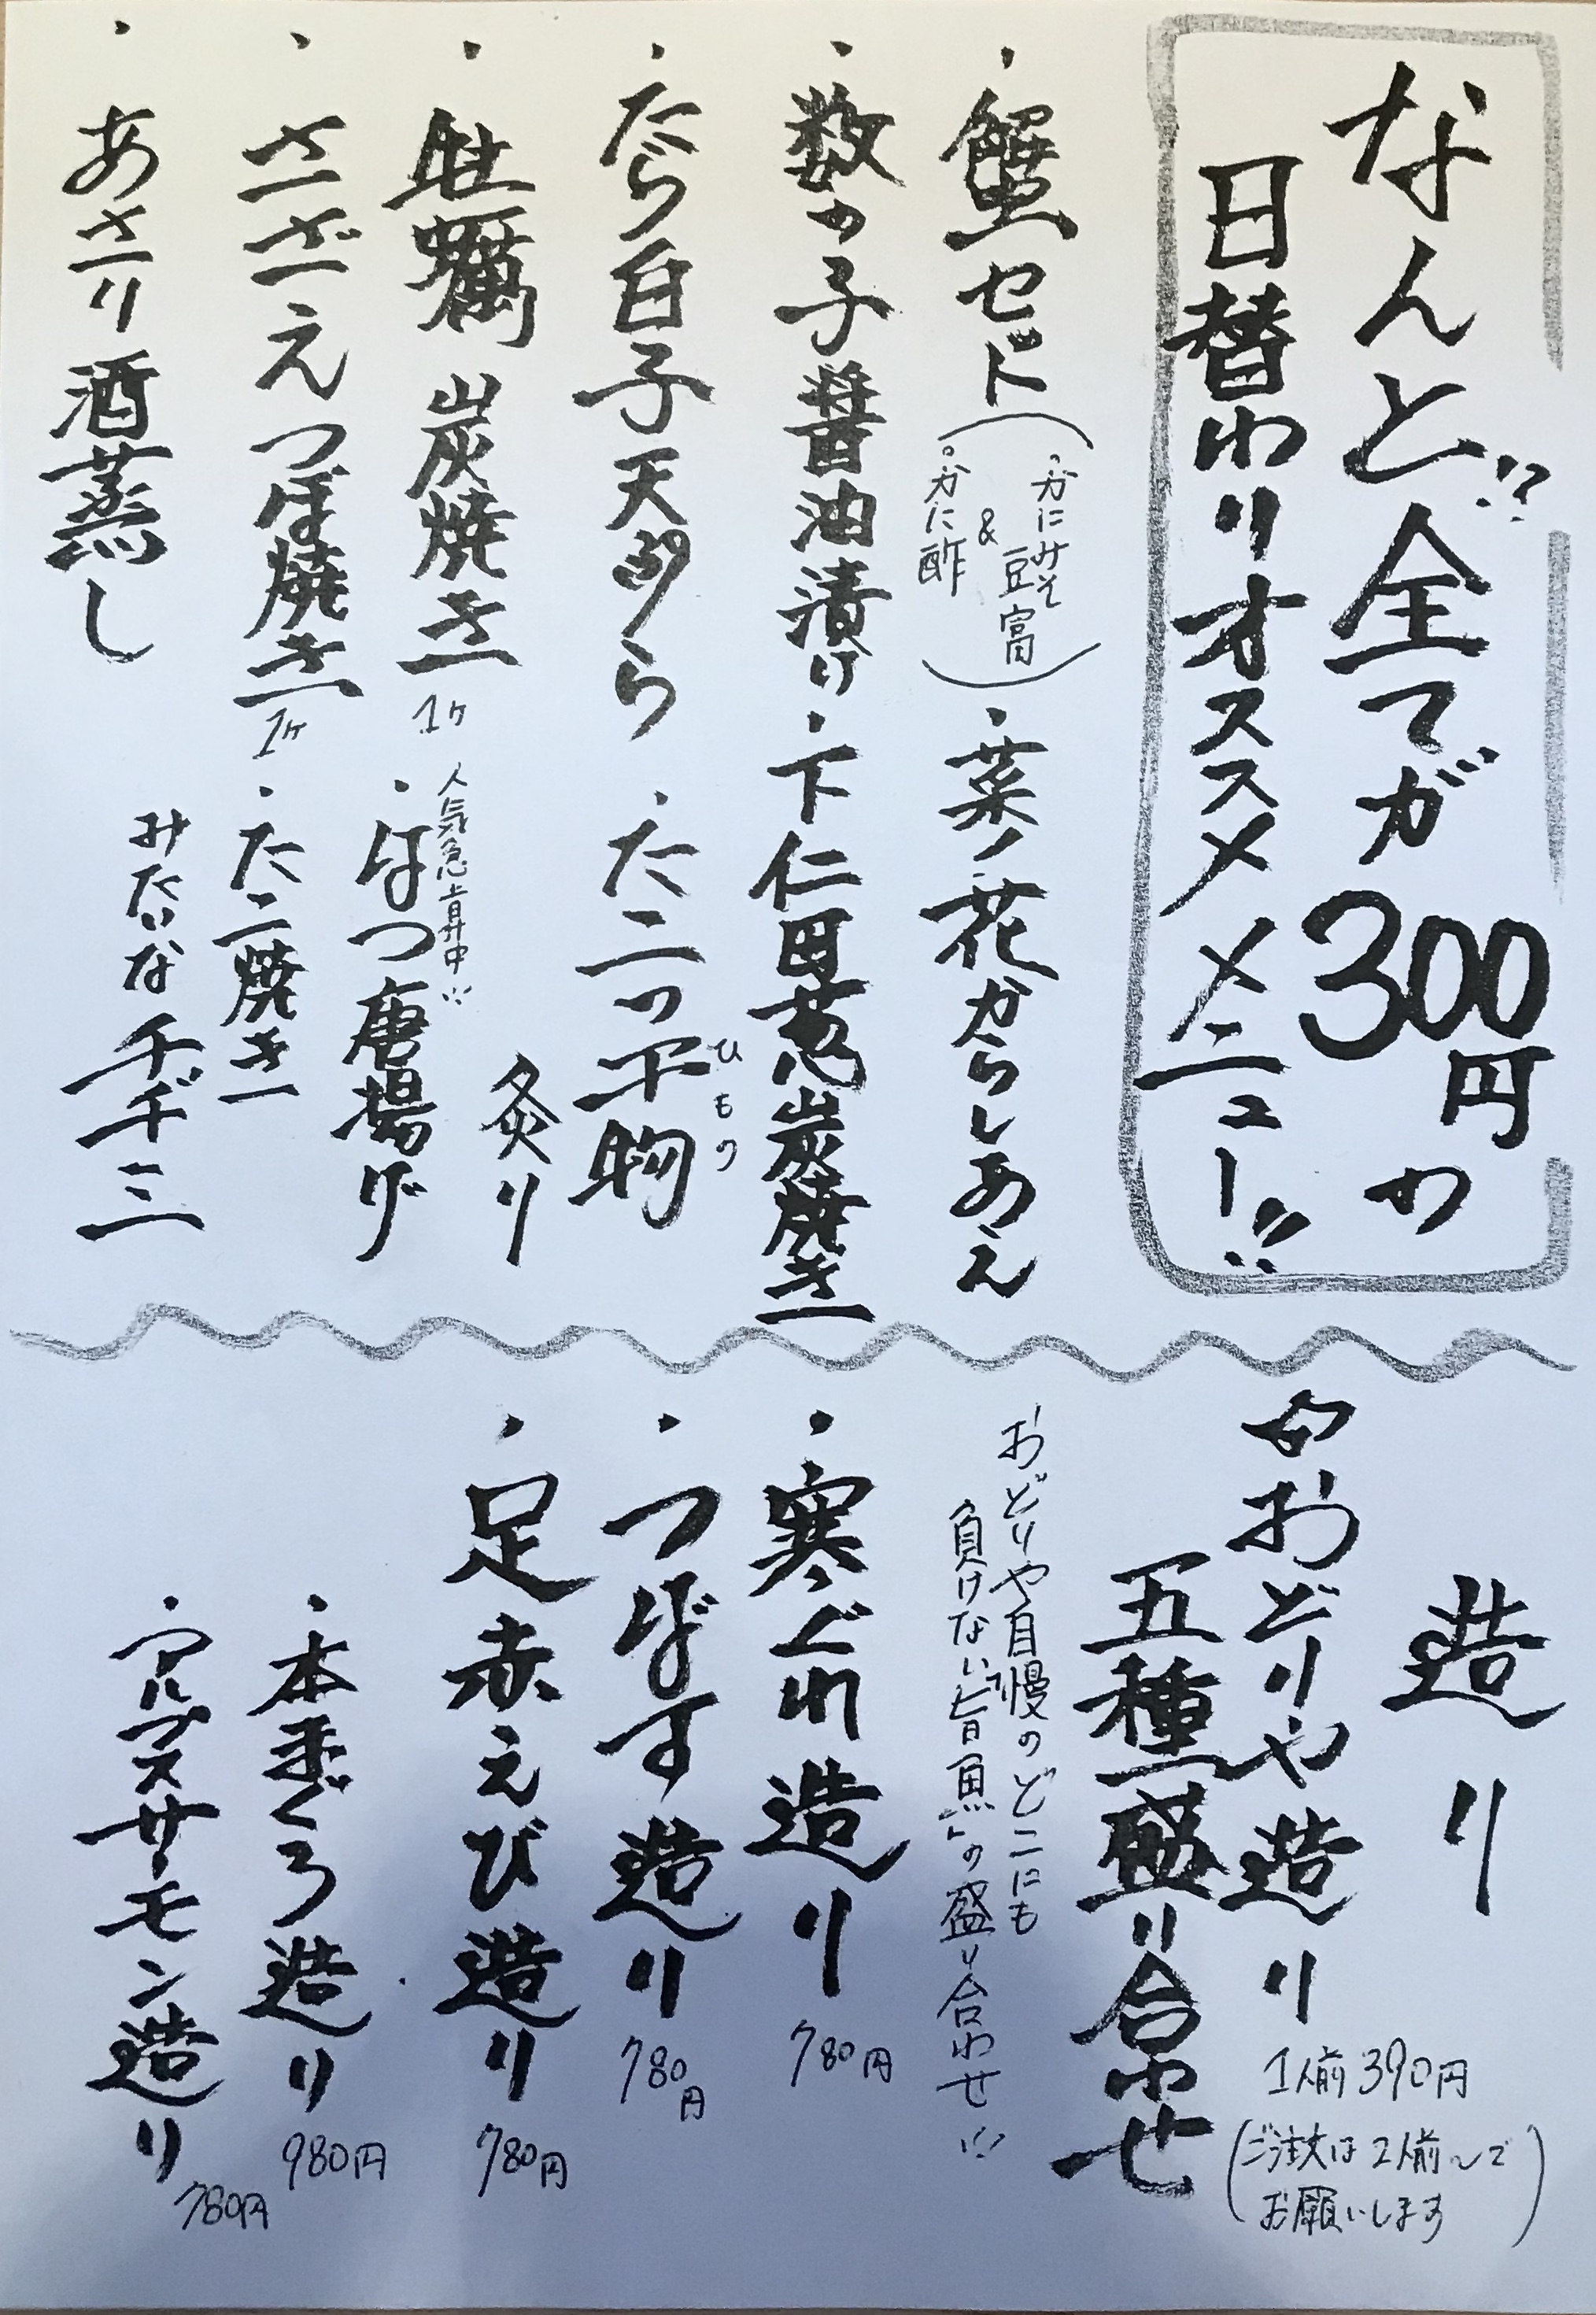 なんと全てが300円の!!
日替わりオススメメニュー!!
・蟹セット
・かにみそ豆富
&
・かに酢
・菜ノ花からしあえ
・数の子醤油漬け
・下仁田葱炭焼き
・たら白子天ぷら
・たこの干物
ひもの
炙り
・牡蠣 炭焼き 1ヶ
人気急上昇中!!
・はつ唐揚げ
・さざえつぼ焼き 1ヶ
・たこ焼き
みたいなチヂミ
・あさり酒蒸し
造り
おどりや造り
五種盛り合わせ
1人前390円
(ご注文は2人前〜で
お願いします)
おどりや自慢のどこにも
負けない「旨魚」の盛り合わせ!!
・寒ぐれ造り 780円
・つばす造り 780円
・足赤えび造り 780円
・本まぐろ造り 980円
・アルプスサーモン造り 780円